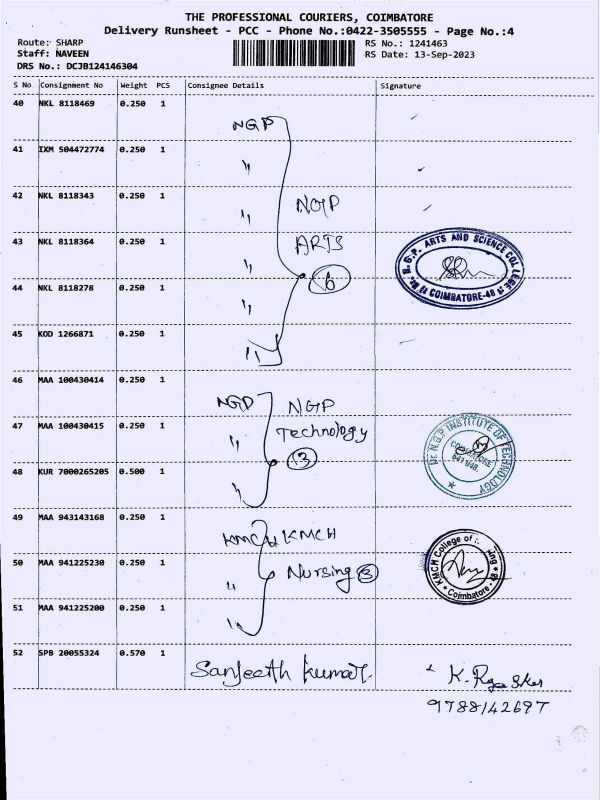 THE PROFESSIONAL COURIERS, COIMBATORE
Delivery Runsheet - PCC - Phone No.:0422-3505555 - Page No.:4
Route: SHARP
RS No.: 1241463
Staff: NAVEEN
RS Date: 13-Sep-2023
DRS No.: DCJB124146304
S No Consignment No Weight PCS Consignee Details Signature
40 NKL 8118469 0.250 1 NGP
41 IXM 504472774 0.250 1 "
42 NKL 8118343 0.250 1 " NGP
43 NKL 8118364 0.250 1 " ARTS
Dr. N.G.P. ARTS AND SCIENCE COLLEGE
COIMBATORE-48
44 NKL 8118278 0.250 1 " 6
45 KOD 1266871 0.250 1 "
46 MAA 100430414 0.250 1 NGP NGP
47 MAA 100430415 0.250 1 " Technology
Dr. N.G.P. INSTITUTE OF TECHNOLOGY
COIMBATORE
641 048.
48 KUR 7000265205 0.500 1 " 3
49 MAA 943143168 0.250 1 KMCH KMCH
50 MAA 941225230 0.250 1 " Nursing 3
KMCH College of
Coimbatore
51 MAA 941225200 0.250 1 "
52 SPB 20055324 0.570 1 Sanjeeth Kumar. K.
9788142697